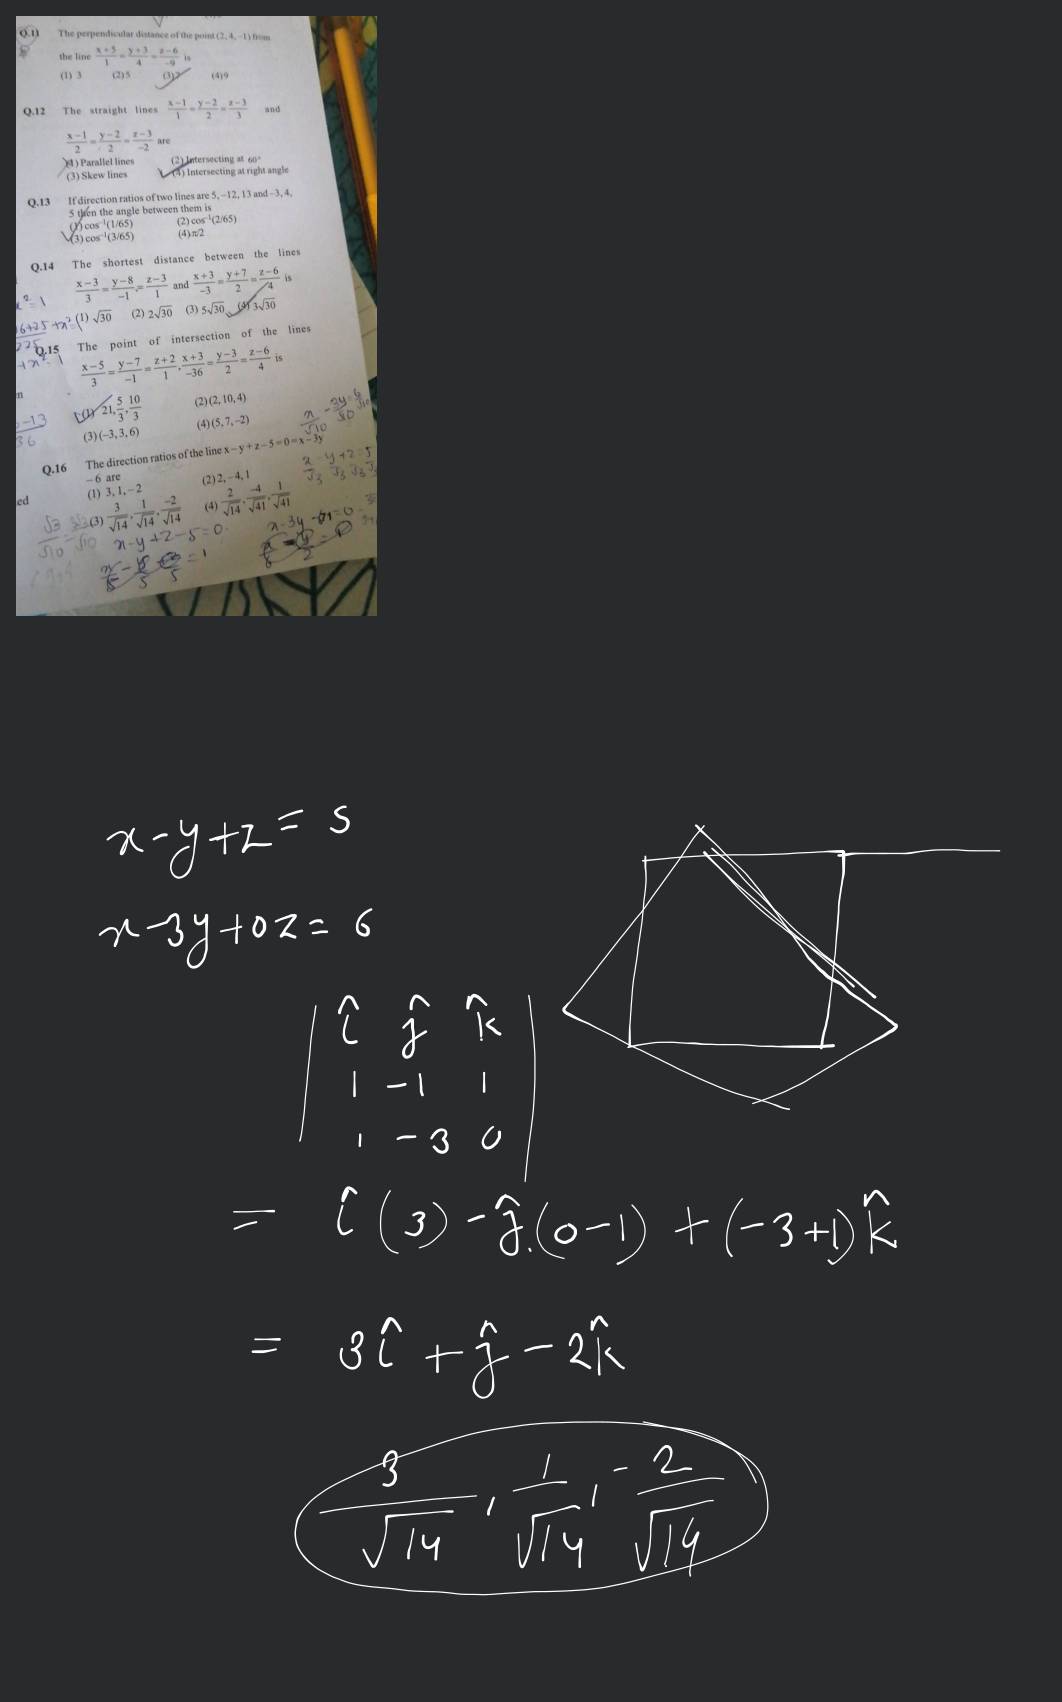 Q.11 The perpendicular distance of the point (2, 4, -1) from
the line x+5/1 = y+3/4 = z-6/-9 is
(1) 3 (2) 5 (3) 7 (4) 9
Q.12 The straight lines x-1/1 = y-2/2 = z-3/3 and
x-1/2 = y-2/2 = z-3/-2 are
(1) Parallel lines (2) Intersecting at 60°
(3) Skew lines (4) Intersecting at right angle
Q.13 If direction ratios of two lines are 5, -12, 13 and -3, 4,
5 then the angle between them is
(1) cos⁻¹(1/65) (2) cos⁻¹(2/65)
(3) cos⁻¹(3/65) (4) π/2
Q.14 The shortest distance between the lines
x-3/3 = y-8/-1 = z-3/1 and x+3/-3 = y+7/2 = z-6/4 is
(1) √30 (2) 2√30 (3) 5√30 (4) 3√30
Q.15 The point of intersection of the lines
x-5/3 = y-7/-1 = z+2/1, x+3/-36 = y-3/2 = z-6/4 is
(1) 21, 5/3, 10/3 (2) (2, 10, 4)
(3) (-3, 3, 6) (4) (5, 7, -2)
Q.16 The direction ratios of the line x-y+z-5=0=x-3y
-6 are
(1) 3, 1, -2 (2) 2, -4, 1
(3) 3/√14, 1/√14, -2/√14 (4) 2/√14, -4/√41, 1/√41
x-y+z-5=0
x-y+z = 5
x-3y+0z = 6
î ĵ k̂
1 -1 1
1 -3 0
= î(3) - ĵ.(0-1) + (-3+1)k̂
= 3î + ĵ - 2k̂
3/√14, 1/√14, -2/√14